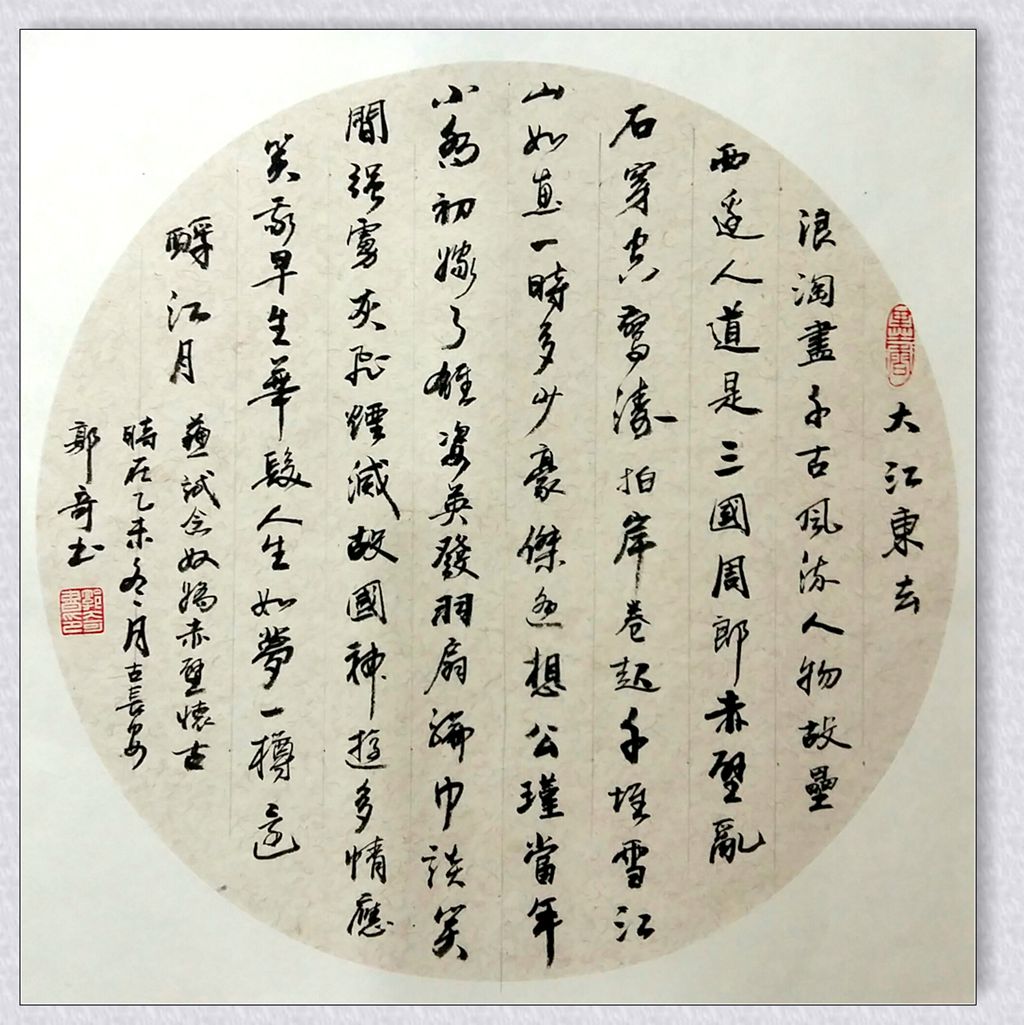 大江東去
浪淘盡千古風流人物故壘
西邊人道是三國周郎赤壁亂
石穿空驚濤拍岸卷起千堆雪江
山如畫一時多少豪傑遥想公瑾當年
小喬初嫁了雄姿英發羽扇綸巾談笑
間強虜灰飛煙滅故國神遊多情應
笑我早生華髮人生如夢一樽還
酹江月
蘇試念奴嬌赤壁懷古
時在乙未冬月古長安
郭奇書
郭奇書印